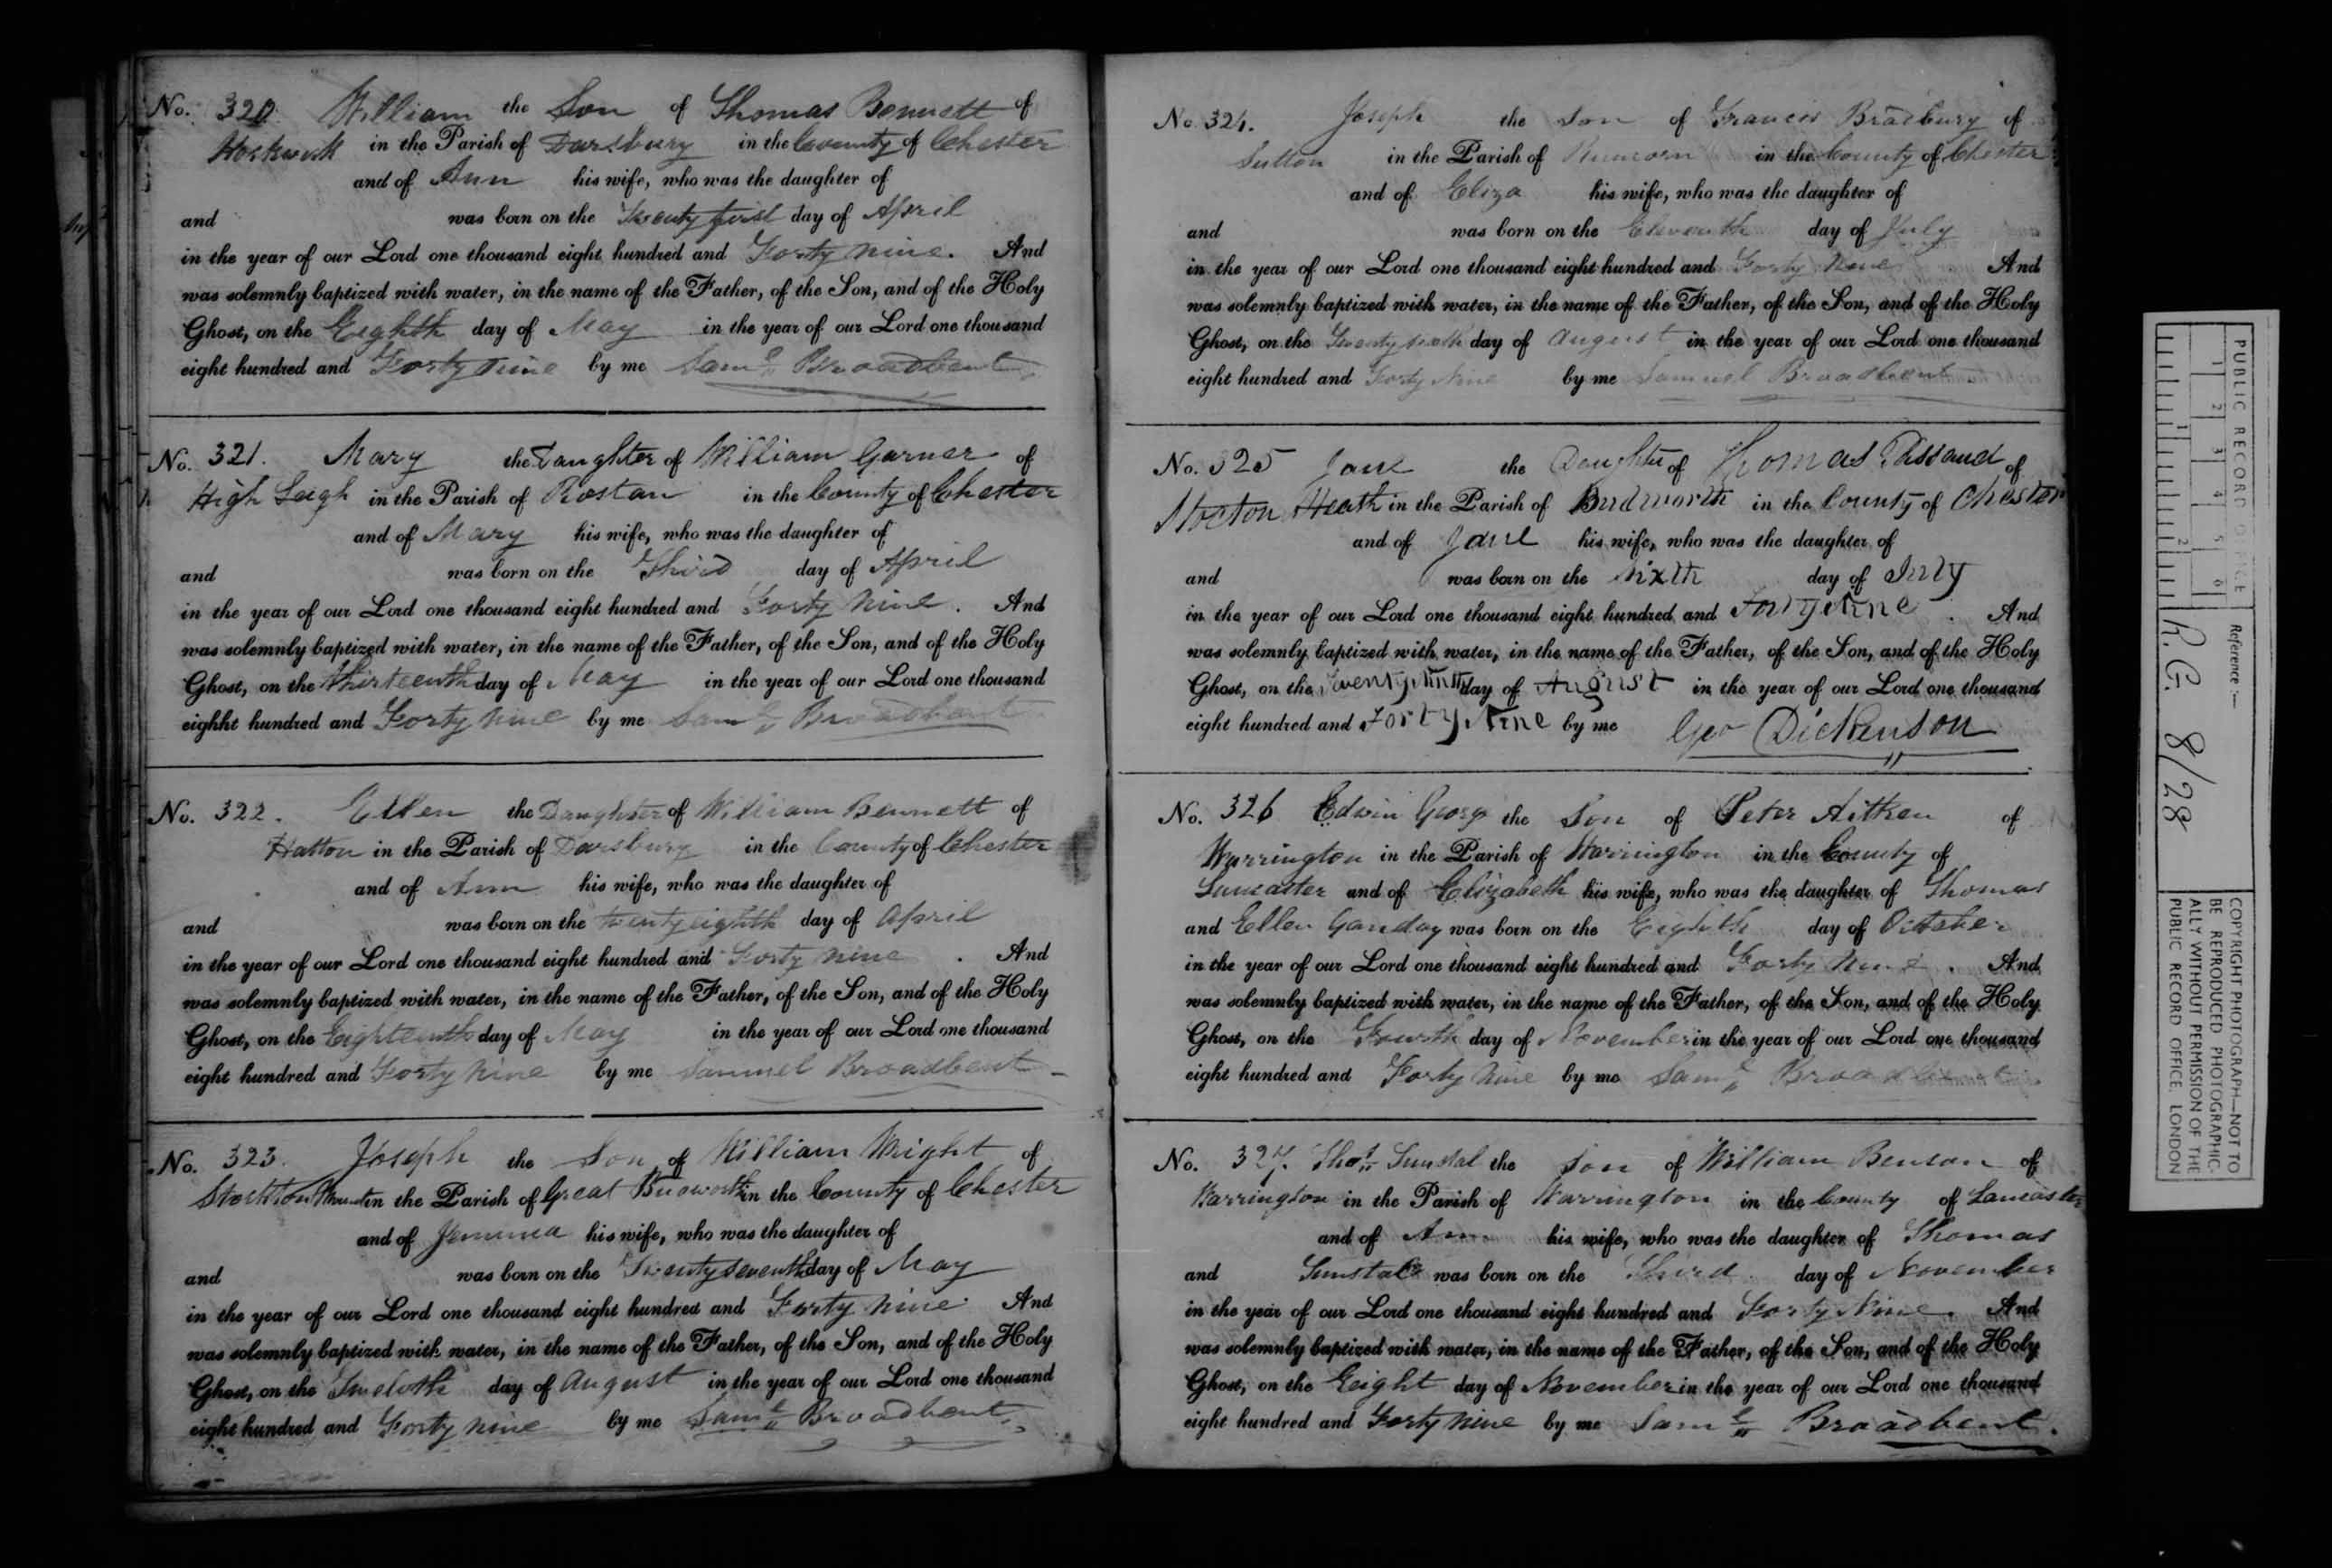 No. 320. William the Son of Thomas Bennett of
in the Parish of Darsbury in the County of Chester
and of Ann his wife, who was the daughter of
and was born on the Twenty first day of April
in the year of our Lord one thousand eight hundred and Forty nine. And
was solemnly baptized with water, in the name of the Father, of the Son, and of the Holy
Ghost, on the Eighth day of May in the year of our Lord one thousand
eight hundred and Forty nine by me Saml. Broadbent
No. 321. Mary the Daughter of William Garner of
High Leigh in the Parish of Rostan in the County of Chester
and of Mary his wife, who was the daughter of
and was born on the Third day of April
in the year of our Lord one thousand eight hundred and Forty Nine. And
was solemnly baptized with water, in the name of the Father, of the Son, and of the Holy
Ghost, on the Thirteenth day of May in the year of our Lord one thousand
eighht hundred and Forty nine by me Saml. Broadbent
No. 322. Ellen the Daughter of William Bennett of
Hatton in the Parish of Darsbury in the County of Chester
and of Ann his wife, who was the daughter of
and was born on the twenty eighth day of April
in the year of our Lord one thousand eight hundred and Forty nine. And
was solemnly baptized with water, in the name of the Father, of the Son, and of the Holy
Ghost, on the Eighteenth day of May in the year of our Lord one thousand
eight hundred and Forty Nine by me Samuel Broadbent
No. 323. Joseph the Son of William Wright of
Stockton in the Parish of Great Budworth in the County of Chester
and of Jemima his wife, who was the daughter of
and was born on the Twenty seventh day of May
in the year of our Lord one thousand eight hundred and Forty nine. And
was solemnly baptized with water, in the name of the Father, of the Son, and of the Holy
Ghost, on the Twelvth day of August in the year of our Lord one thousand
eight hundred and Forty nine by me Saml. Broadbent
No. 324. Joseph the Son of Francis Bradbury of
Sutton in the Parish of Runcorn in the County of Chester
and of Eliza his wife, who was the daughter of
and was born on the Eleventh day of July
in the year of our Lord one thousand eight hundred and Forty Nine And
was solemnly baptized with water, in the name of the Father, of the Son, and of the Holy
Ghost, on the Twenty sixth day of August in the year of our Lord one thousand
eight hundred and Forty Nine by me Samuel Broadbent
No. 325 Jane the Daughter of Thomas of
Stocton Heath in the Parish of Budworth in the County of Chester
and of Jane his wife, who was the daughter of
and was born on the Sixth day of July
in the year of our Lord one thousand eight hundred and Forty Nine. And
was solemnly baptized with water, in the name of the Father, of the Son, and of the Holy
Ghost, on the day of August in the year of our Lord one thousand
eight hundred and Forty Nine by me Geo Dickenson
No. 326 Edwin Georg the Son of Peter Aitken of
Warrington in the Parish of Warrington in the County of
Lancaster and of Elizabeth his wife, who was the daughter of Thomas
and Ellen Ganday was born on the Eighth day of October
in the year of our Lord one thousand eight hundred and Forty Nine. And
was solemnly baptized with water, in the name of the Father, of the Son, and of the Holy
Ghost, on the Fourth day of November in the year of our Lord one thousand
eight hundred and Forty Nine by me Saml. Broadbent
No. 327. Thos. the Son of William Benson of
Warrington in the Parish of Warrington in the County of Lancaster
and of Ann his wife, who was the daughter of Thomas
and was born on the Third day of November
in the year of our Lord one thousand eight hundred and Forty Nine. And
was solemnly baptized with water, in the name of the Father, of the Son, and of the Holy
Ghost, on the Eeight day of November in the year of our Lord one thousand
eight hundred and Forty nine by me Saml. Broadbent.
PUBLIC RECORD OFFICE
1 2 3 4 5 6
1 2
Reference :—
R.G. 8/28
COPYRIGHT PHOTOGRAPH—NOT TO
BE REPRODUCED PHOTOGRAPHIC-
ALLY WITHOUT PERMISSION OF THE
PUBLIC RECORD OFFICE, LONDON